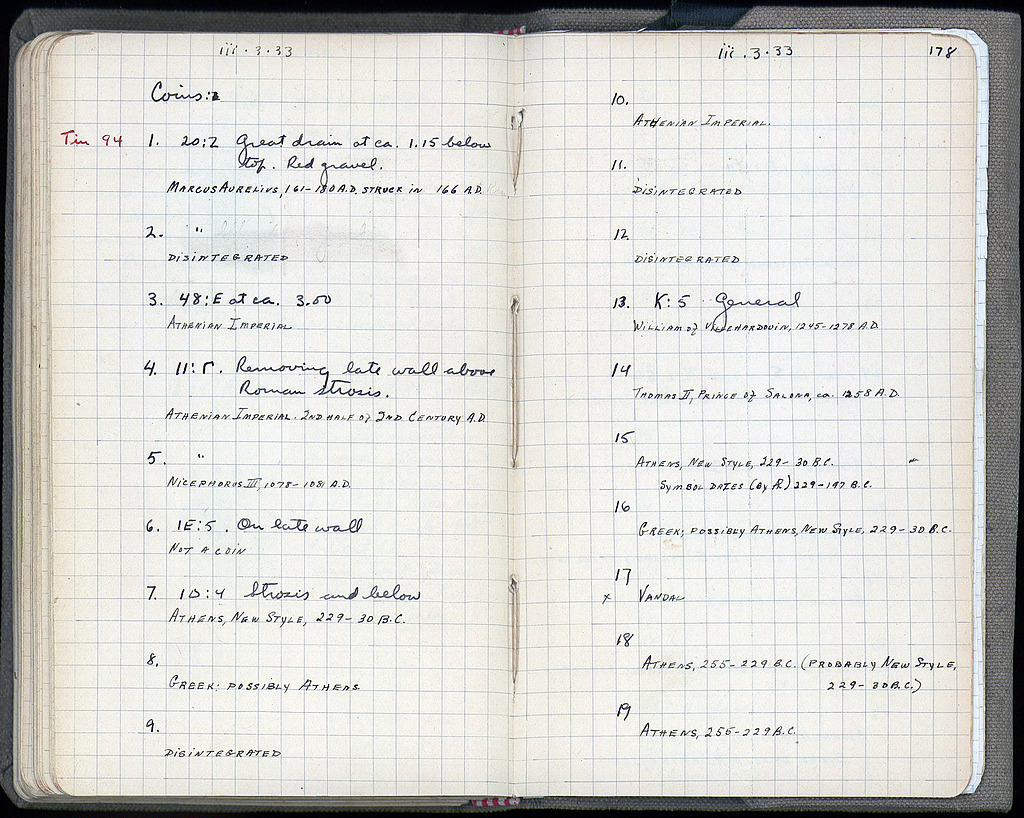 iii · 3 · 33
Coins:
Tin 94 1. 20:Z Great drain at ca. 1.15 below
top. Red gravel.
MARCUS AURELIUS, 161-180 A.D. STRUCK IN 166 A.D.
2. "
DISINTEGRATED
3. 48:E at ca. 3.00
ATHENIAN IMPERIAL
4. 11:Γ. Removing late wall above
Roman strosis.
ATHENIAN IMPERIAL. 2ND HALF OF 2ND CENTURY A.D.
5. "
NICEPHORUS III, 1078-1081 A.D.
6. IE:5. On late wall
NOT A COIN
7. 10:4 Strosis and below
ATHENS, NEW STYLE, 229-30 B.C.
8.
GREEK; POSSIBLY ATHENS
9.
DISINTEGRATED
iii . 3 · 33 178
10.
ATHENIAN IMPERIAL.
11.
DISINTEGRATED
12
DISINTEGRATED
13. K:5 General
WILLIAM OF VILLEHARDOUIN, 1245-1278 A.D.
14
THOMAS II, PRINCE OF SALONA, ca. 1258 A.D.
15
ATHENS, NEW STYLE, 229-30 B.C.
SYMBOL DATES (BY) 229-197 B.C.
16
GREEK; POSSIBLY ATHENS, NEW STYLE, 229-30 B.C.
17
x VANDAL
18
ATHENS, 255-229 B.C. (PROBABLY NEW STYLE,
229-30 B.C.)
19
ATHENS, 255-229 B.C.